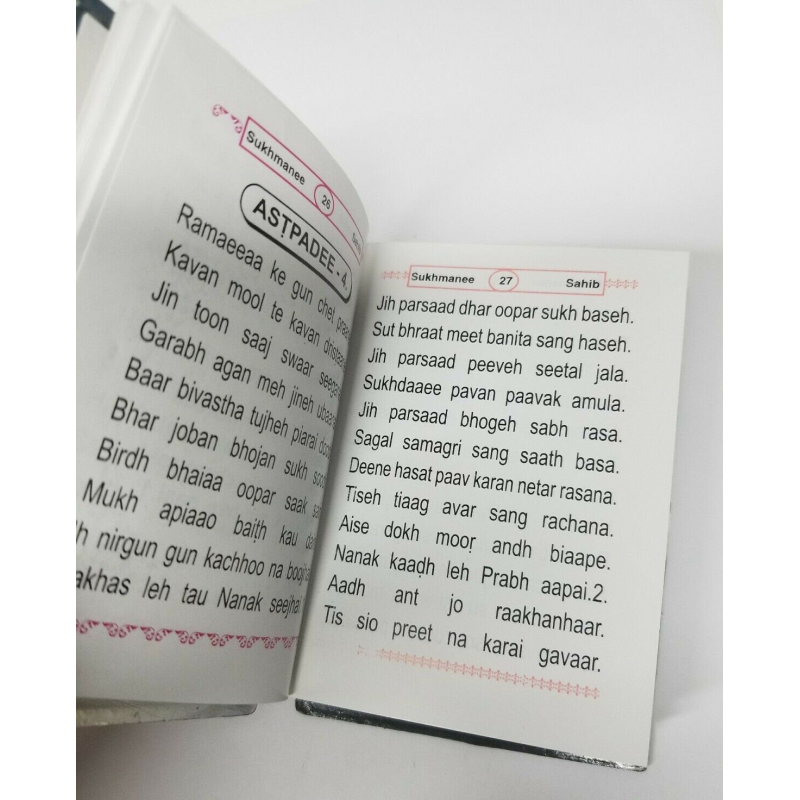 Sukhmanee 26
ASṬPADEE - 4.
Ramaeeaa ke gun chet
Kavan mool te kavan
Jin toon saaj swaar
Garabh agan meh jineh
Baar bivastha tujheh piarai
Bhar joban bhojan sukh
Birdh bhaiaa oopar saak
Mukh apiaao baiṭh kau
nirgun gun kachhoo na
leh tau Nanak
Sukhmanee 27 Sahib
Jih parsaad dhar oopar sukh baseh.
Sut bhraat meet banita sang haseh.
Jih parsaad peeveh seetal jala.
Sukhdaaee pavan paavak amula.
Jih parsaad bhogeh sabh rasa.
Sagal samagri sang saath basa.
Deene hasat paav karan netar rasana.
Tiseh tiaag avar sang rachana.
Aise dokh mooṛ andh biaape.
Nanak kaaḍh leh Prabh aapai.2.
Aadh ant jo raakhanhaar.
Tis sio preet na karai gavaar.